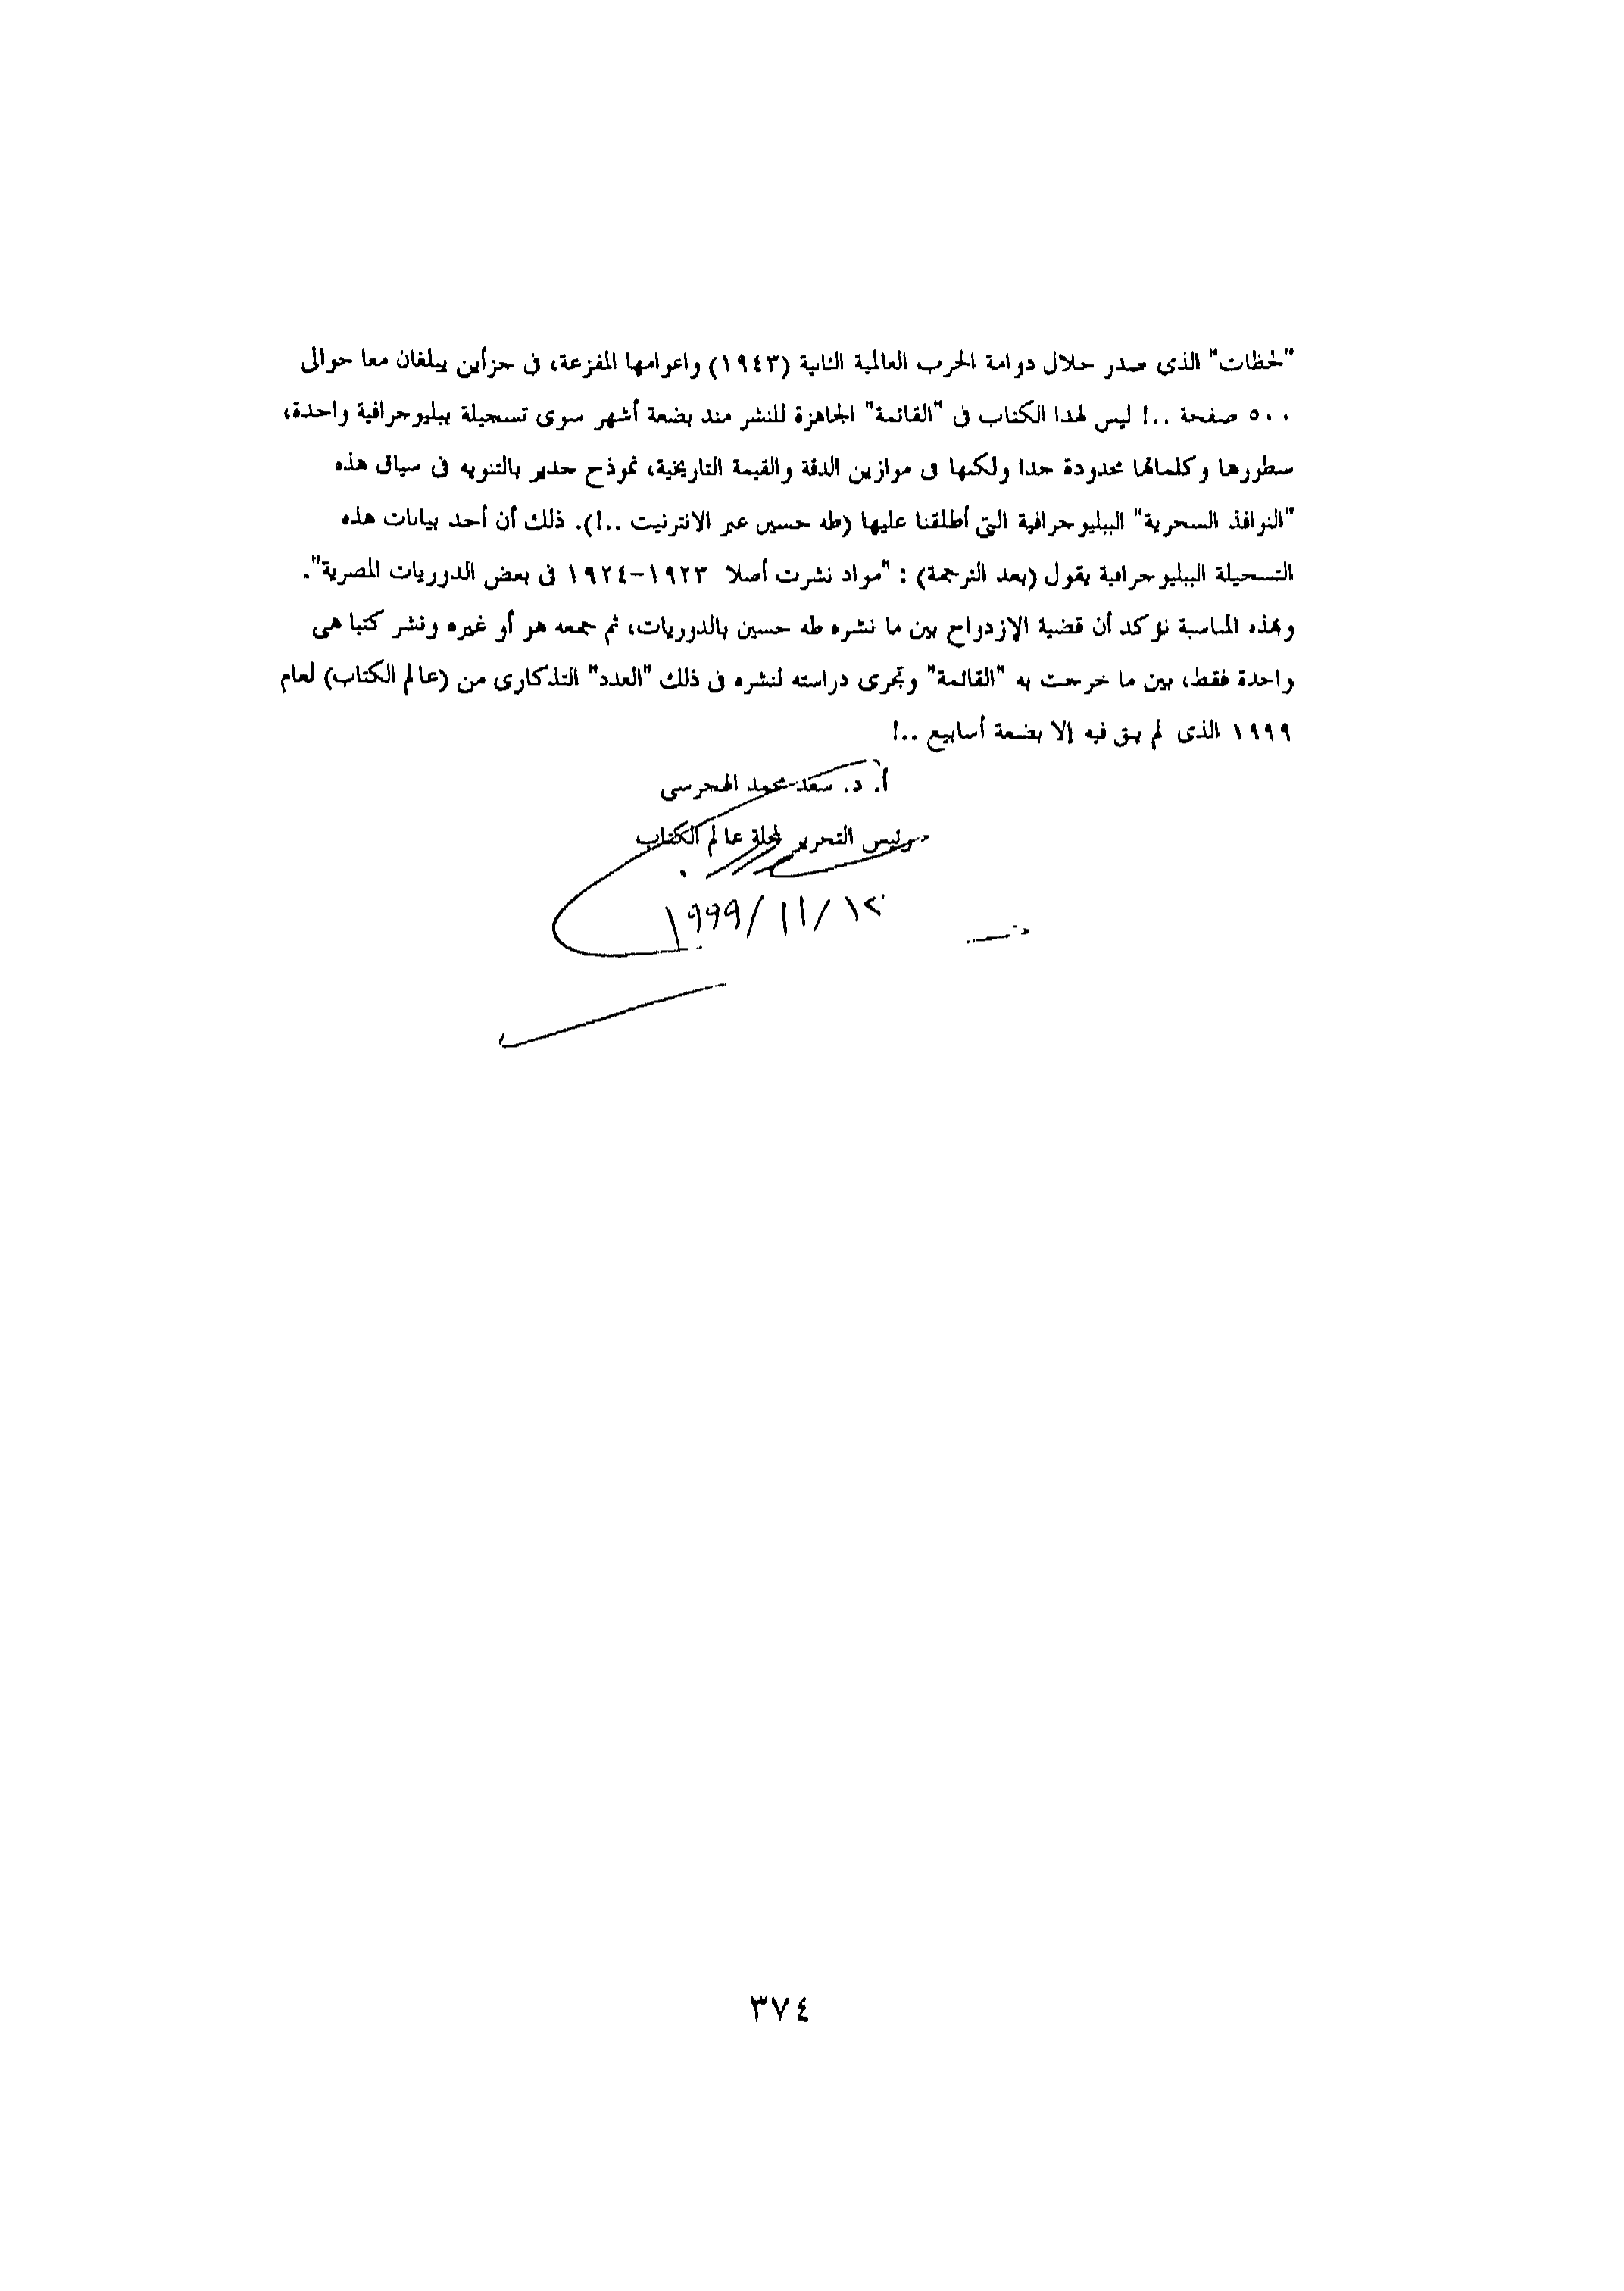 "لحظات" الذى صدر خلال دوامة الحرب العالمية الثانية (١٩٤٣) واعوامها المفزعة، فى جزأين يبلغان معا حوالى
٥٠٠ صفحة ..! ليس لهذا الكتاب فى "القائمة" الجاهزة للنشر منذ بضعة أشهر سوى تسجيلة ببليوجرافية واحدة،
سطورها وكلماتها محدودة جدا ولكنها فى موازين الدقة والقيمة التاريخية، نموذج جدير بالتنويه فى سياق هذه
"النوافذ السحرية" الببليوجرافية التى أطلقنا عليها (طه حسين عبر الانترنيت ..!). ذلك أن أحد بيانات هذه
التسجيلة الببليوجرافية يقول (بعد الترجمة) : "مواد نشرت أصلا ١٩٢٣-١٩٢٤ فى بعض الدوريات المصرية".
وبهذه المناسبة نؤكد أن قضية الإزدواج بين ما نشره طه حسين بالدوريات، ثم جمعه هو أو غيره ونشر كتبا هى
واحدة فقط، بين ما خرجت به "القائمة" وتجرى دراسته لنشره فى ذلك "العدد" التذكارى من (عالم الكتاب) لعام
١٩٩٩ الذى لم يبق فيه إلا بضعة أسابيع ..!
أ. د. سعد محمد الهجرسى
رئيس التحرير لمجلة عالم الكتاب
١٩٩٩/١١/١٢
٣٧٤